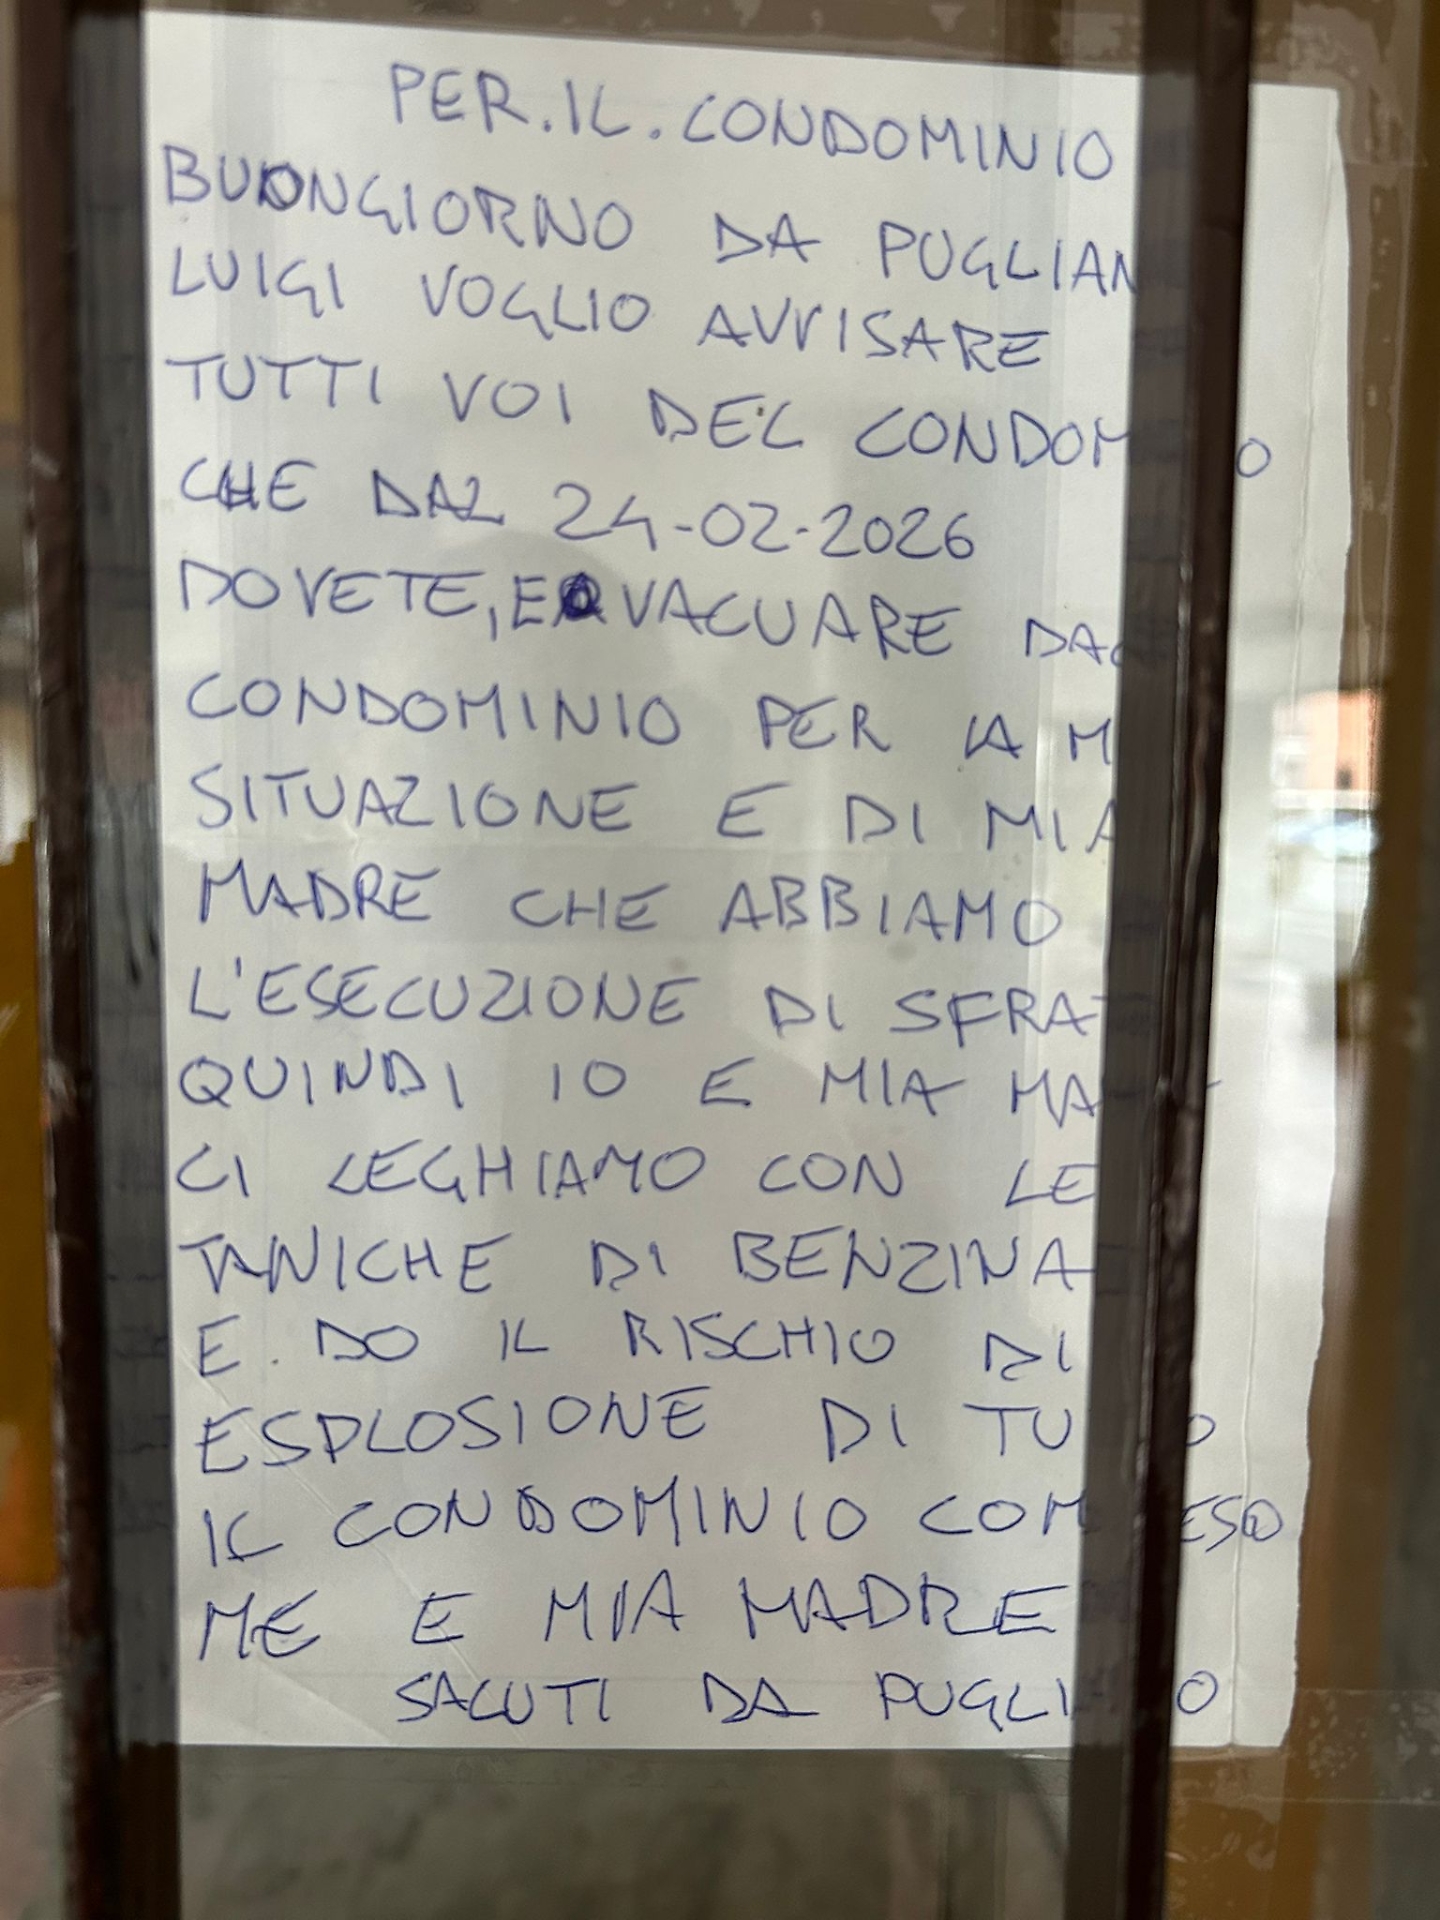 PER.IL.CONDOMINIO
BUONGIORNO DA PUGLIAN
LUIGI VOGLIO AVVISARE
TUTTI VOI DEL CONDOM O
CHE DAL 24-02-2026
DOVETE, EVACUARE DAL
CONDOMINIO PER LA M
SITUAZIONE E DI MIA
MADRE CHE ABBIAMO
L'ESECUZIONE DI SFRAT
QUINDI IO E MIA MA
CI LEGHIAMO CON LE
TANICHE DI BENZINA
E. DO IL RISCHIO DI
ESPLOSIONE DI TU O
IL CONDOMINIO COM ESO
ME E MIA MADRE
SALUTI DA PUGLI O